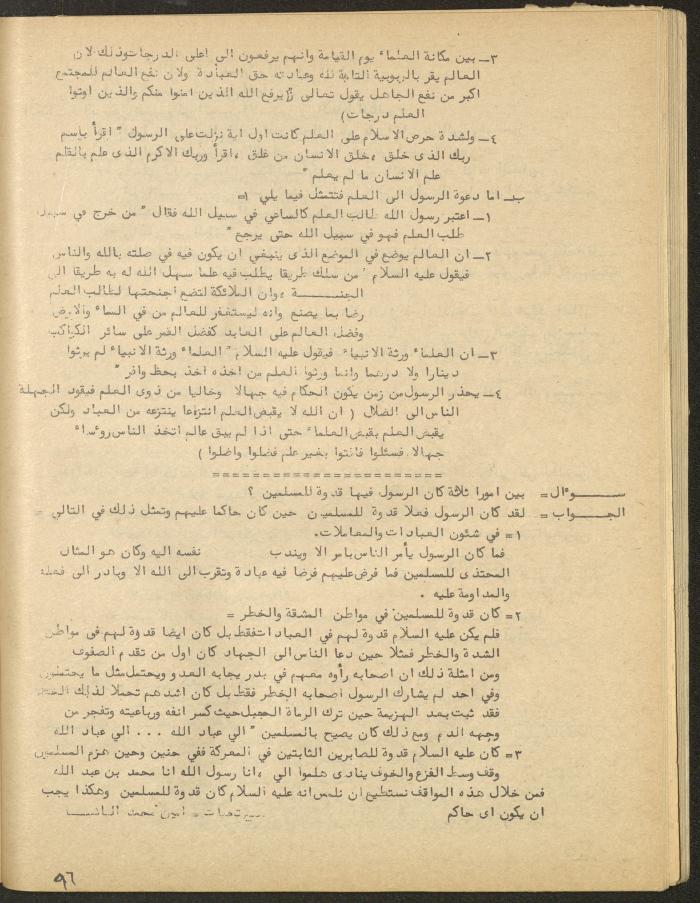 ٣ـ بين مكانة العلماء يوم القيامة وانهم يرفعون الى اعلى الدرجات وذلك لان
العالم يقر بالربوبية التامة لله وعبادته حق العبادة ولان نفع العالم للمجتمع
اكبر من نفع الجاهل يقول تعالى (يرفع الله الذين امنوا منكم والذين اوتوا
العلم درجات)
٤ـ ولشدة حرص الاسلام على العلم كانت اول اية نزلت على الرسول " اقرأ بإسم
ربك الذى خلق ، خلق الانسان من علق ، اقرأ وربك الاكرم الذى علم بالقلم
علم الانسان ما لم يعلم "
بـ اما دعوة الرسول الى العلم فتتمثل فيما يلي =
١ـ اعتبر رسول الله طالب العلم كالساعي في سبيل الله فقال " من خرج في سبيل
طلب العلم فهو في سبيل الله حتى يرجع "
٢ـ ان العالم يوضع في الموضع الذى ينبغي ان يكون فيه في صلته بالله والناس
فيقول عليه السلام " من سلك طريقا يطلب فيه علما سهل الله له به طريقا الى
الجنــــــة ، وان الملائكة لتضع اجنحتها لطالب العلم
رضا بما يصنع وانه ليستغفر للعالم من في السماء والارض
وفضل العالم على العابد كفضل القمر على سائر الكواكب
٣ـ ان العلماء ورثة الانبياء فيقول عليه السلام " العلماء ورثة الانبياء لم يورثوا
دينارا ولا درهما وانما ورثوا العلم من اخذه اخذ بحظ وافر "
٤ـ يحذر الرسول من زمن يكون الحكام فيه جهالا وخاليا من ذوى العلم فيقود الجهلة
الناس الى الضلال ( ان الله لا يقبض العلم انتزاعا ينتزعه من العباد ولكن
يقبض العلم بقبض العلماء حتى اذا لم يبق عالم اتخذ الناس روءساء
جهالا فسئلوا فافتوا بغير علم فضلوا واضلوا )
=======================
ســــوءال = بين امورا ثلاثة كان الرسول فيها قدوة للمسلمين ؟
الجــواب = لقد كان الرسول فعلا قدوة للمسلمين حين كان حاكما عليهم وتمثل ذلك في التالي =
١= في شئون العبادات والمعاملات .
فما كان الرسول يأمر الناس بامر الا ويندب نفسه اليه وكان هو المثال
المحتذى للمسلمين فما فرض عليهم فرضا فيه عبادة وتقرب الى الله الا وبادر الى فعله
والمداومة عليه .
٢= كان قدوة للمسلمين في مواطن المشقة والخطر =
فلم يكن عليه السلام قدوة لهم في العبادات فقط بل كان ايضا قدوة لهم فى مواطن
الشدة والخطر فمثلا حين دعا الناس الى الجهاد كان اول من تقدم الصفوف
ومن امثلة ذلك ان اصحابه رأوه معهم في بدر يجابه العدو ويحتمل مثل ما يحتملون
وفي احد لم يشارك الرسول اصحابه الخطر فقط بل كان اشدهم تحملا لذلك الخطر
فقد ثبت بعد الهزيمة حين ترك الرماة الجبل حيث كسر انفه ورباعيته وتفجر من
وجهه الدم ومع ذلك كان يصيح بالمسلمين " الي عباد الله ... الي عباد الله
٣= كان عليه السلام قدوة للصابرين الثابتين في المعركة ففي حنين وحين هزم المسلمين
وقف وسط الفزع والخوف ينادى هلموا الي ، انا رسول الله انا محمد بن عبد الله
فمن خلال هذه المواقف نستطيع ان نلمس انه عليه السلام كان قدوة للمسلمين وهكذا يجب
ان يكون اى حاكم = امين محمد
٩٦